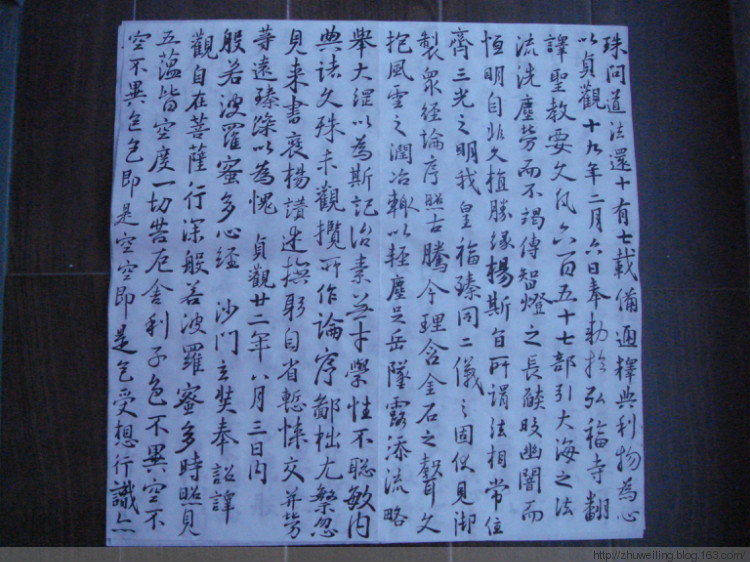 珠問道法還十有七載備通釋典利物為心
以貞觀十九年二月六日奉勅於弘福寺翻
譯聖教要文凡六百五十七部引大海之法
流洗塵勞而不竭傳智燈之長燄皎幽闇而
恒明自非久植勝緣楊斯旨所謂法相常住
齊三光之明我皇福臻同二儀之固伏見御
製眾經論序照古騰今理含金石之聲文
抱風雲之潤治輒以輕塵足岳墜露添流略
舉大綱以為斯記治素無才學性不聰敏內
典諸文殊未觀攬所作論序鄙拙尤繁忽
見来書褒楊讚述撫躬自省慙悚交并勞
等遠臻深以為愧 貞觀廿二年八月三日內
般若波羅蜜多心經 沙門玄奘奉詔譯
觀自在菩薩行深般若波羅蜜多時照見
五蘊皆空度一切苦厄舍利子色不異空不
空不異色色即是空空即是色受想行識亦
http://zhuweiling.blog.163.com/